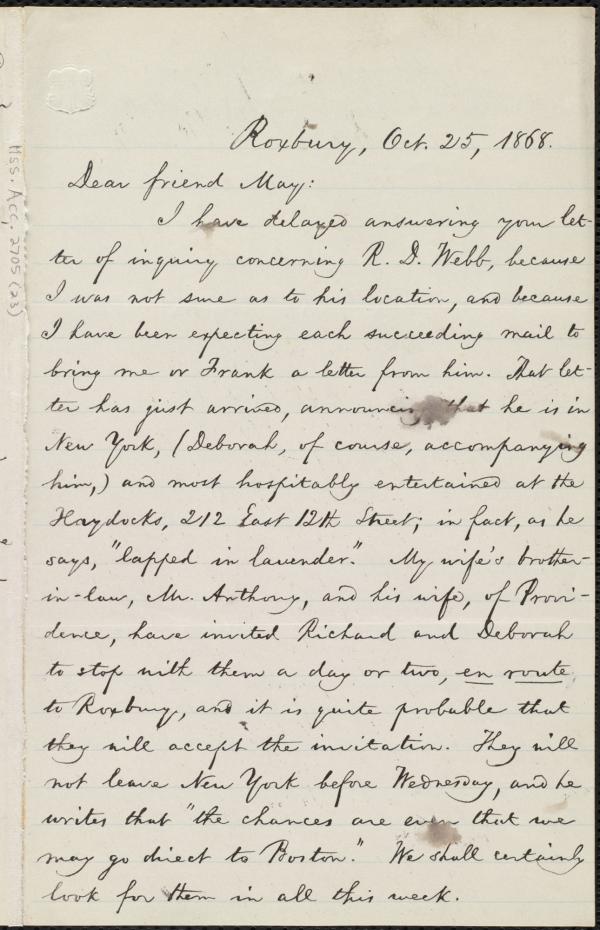 Roxbury, Oct. 25, 1868.
Dear friend May:
I have delayed answering your let-
ter of inquiry concerning R. D. Webb, because
I was not sure as to his location, and because
I have been expecting each succeeding mail to
bring me or Frank a letter from him. That let-
ter has just arrived, announcing that he is in
New York, (Deborah, of course, accompanying
him,) and most hospitably entertained at the
Haydocks, 212 East 12th Street; in fact, as he
says, "lapped in lavender." My wife's brother-
in-law, Mr. Anthony, and his wife, of Provi-
dence, have invited Richard and Deborah
to stop with them a day or two, en route
to Roxbury, and it is quite probable that
they will accept the invitation. They will
not leave New York before Wednesday, and he
writes that "the chances are even that we
may go direct to Boston." We shall certainly
look for them in all this week.
Mss. Acc. 2705 (23)